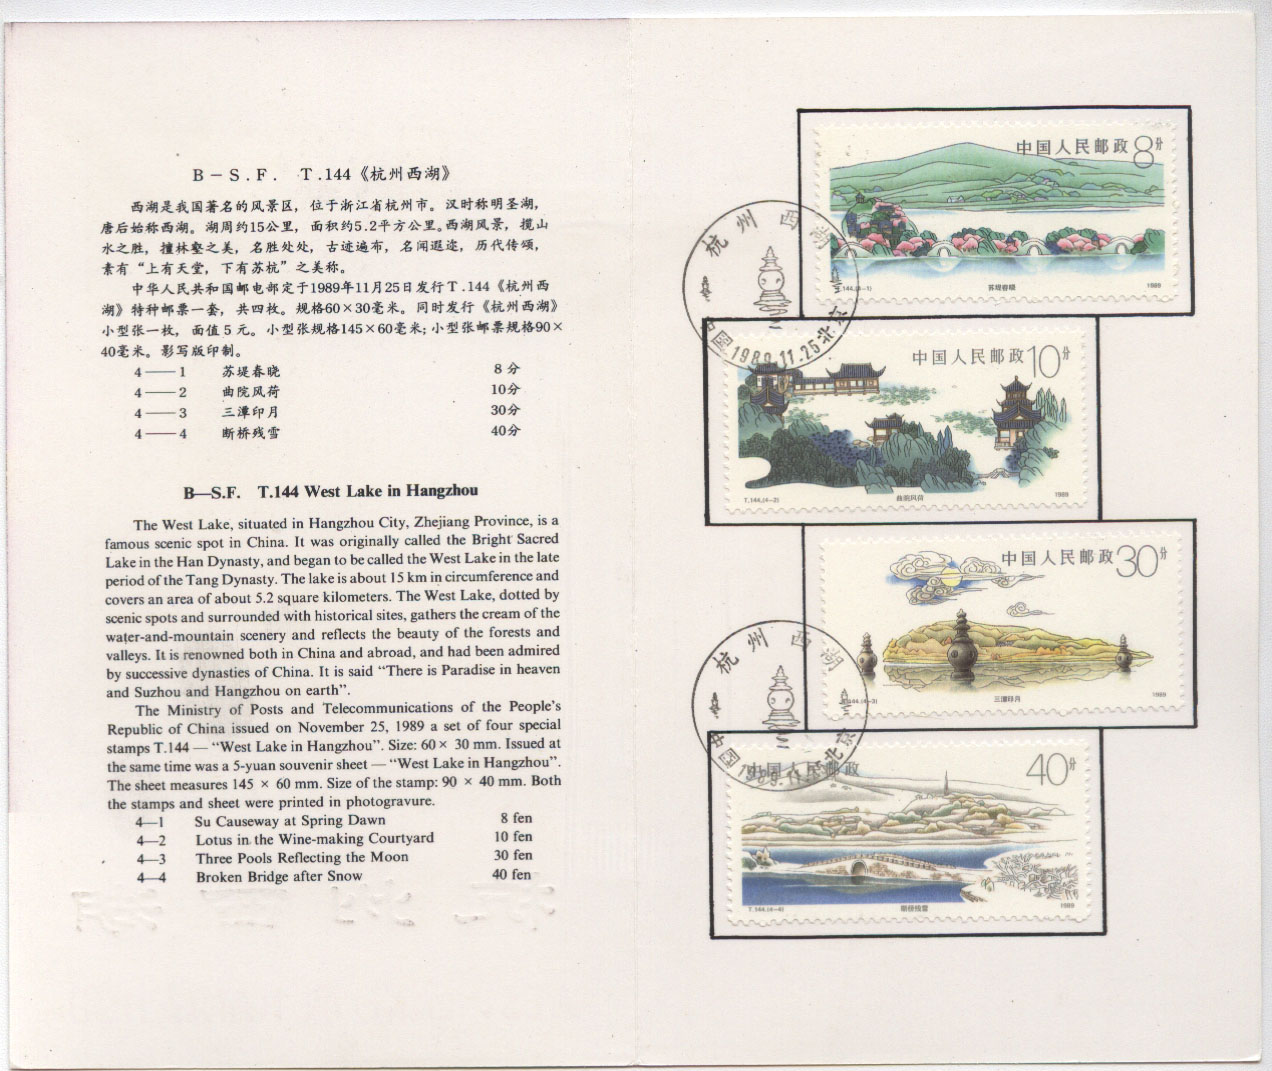 B－S.F. T.144《杭州西湖》
西湖是我国著名的风景区，位于浙江省杭州市。汉时称明圣湖，
唐后始称西湖。湖周约15公里，面积约5.2平方公里。西湖风景，揽山
水之胜，擅林壑之美，名胜处处，古迹遍布，名闻遐迩，历代传颂，
素有“上有天堂，下有苏杭”之美称。
中华人民共和国邮电部定于1989年11月25日发行T.144《杭州西
湖》特种邮票一套，共四枚。规格60×30毫米。同时发行《杭州西湖》
小型张一枚，面值5元。小型张规格145×60毫米；小型张邮票规格90×
40毫米。影写版印制。
4——1 苏堤春晓 8分
4——2 曲院风荷 10分
4——3 三潭印月 30分
4——4 断桥残雪 40分
B—S.F. T.144 West Lake in Hangzhou
The West Lake, situated in Hangzhou City, Zhejiang Province, is a
famous scenic spot in China. It was originally called the Bright Sacred
Lake in the Han Dynasty, and began to be called the West Lake in the late
period of the Tang Dynasty. The lake is about 15 km in circumference and
covers an area of about 5.2 square kilometers. The West Lake, dotted by
scenic spots and surrounded with historical sites, gathers the cream of the
water-and-mountain scenery and reflects the beauty of the forests and
valleys. It is renowned both in China and abroad, and had been admired
by successive dynasties of China. It is said “There is Paradise in heaven
and Suzhou and Hangzhou on earth”.
The Ministry of Posts and Telecommunications of the People’s
Republic of China issued on November 25, 1989 a set of four special
stamps T.144 — “West Lake in Hangzhou”. Size: 60× 30 mm. Issued at
the same time was a 5-yuan souvenir sheet — “West Lake in Hangzhou”.
The sheet measures 145 × 60 mm. Size of the stamp: 90 × 40 mm. Both
the stamps and sheet were printed in photogravure.
4—1 Su Causeway at Spring Dawn 8 fen
4—2 Lotus in the Wine-making Courtyard 10 fen
4—3 Three Pools Reflecting the Moon 30 fen
4—4 Broken Bridge after Snow 40 fen
中国人民邮政 8分
.144.(4-1) 苏堤春晓 1989
杭州西湖
中国 1989.11.25 北京
中国人民邮政 10分
T.144.(4-2) 曲院风荷 1989
中国人民邮政 30分
.144.(4-3) 三潭印月 1989
杭州西湖
中国 1989.11.25 北京
中国人民邮政 40分
T.144.(4-4) 断桥残雪 1989